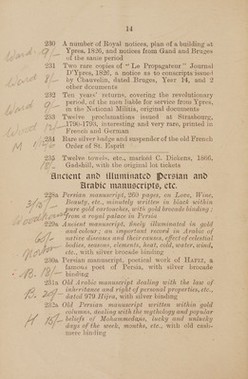 14
230 A number of Royal notices, plan of a building at
Ypres, 1826, and notices from Gand and Bruges
of the same period
231 Two rare copies of "Le Propagateur" Journal
D'Ypres, 1826, a notice as to conscripts issued
by Chauvelin, dated Bruges, Year 14, and 2
other documents
232 Ten years' returns, covering the revolutionary
period, of the men liable for service from Ypres,
in the National Militia, original documents
233 Twelve proclamations issued at Strasburg,
1790-1793, interesting and very rare, printed in
French and German
234 Rare silver badge and suspender of the old French
Order of St. Esprit
235 Twelve towels, etc., marked C. Dickens, 1866,
Gadshill, with the original lot tickets
Ancient and illuminated Persian and
Arabic manuscripts, etc.
228a Persian manuscript, 250 pages, on Love, Wine,
Beauty, etc., minutely written in black within
pure gold cartouches, with gold brocade binding;
from a royal palace in Persia
229a Ancient manuscript, finely illuminated in gold
and colour; an important record in Arabic of
native diseases and their causes, effect of celestial
bodies, seasons, elements, heat, cold, water, wind,
etc., with silver brocade binding
230a Persian manuscript, poetical work of HAFIZ, a
famous poet of Persia, with silver brocade
binding
231a Old Arabic manuscript dealing with the law of
inheritance and right of personal properties, etc.,
dated 979 Hijra, with silver binding
232a Old Persian manuscript written within gold
columns, dealing with the mythology and popular
beliefs of Mohammedans, lucky and unlucky
days of the week, months, etc., with old cash-
mere binding
Ward
Ward
Ward
Wood
Woodhouse
60/-
B. 12/-
B. 20/-
H 15/-